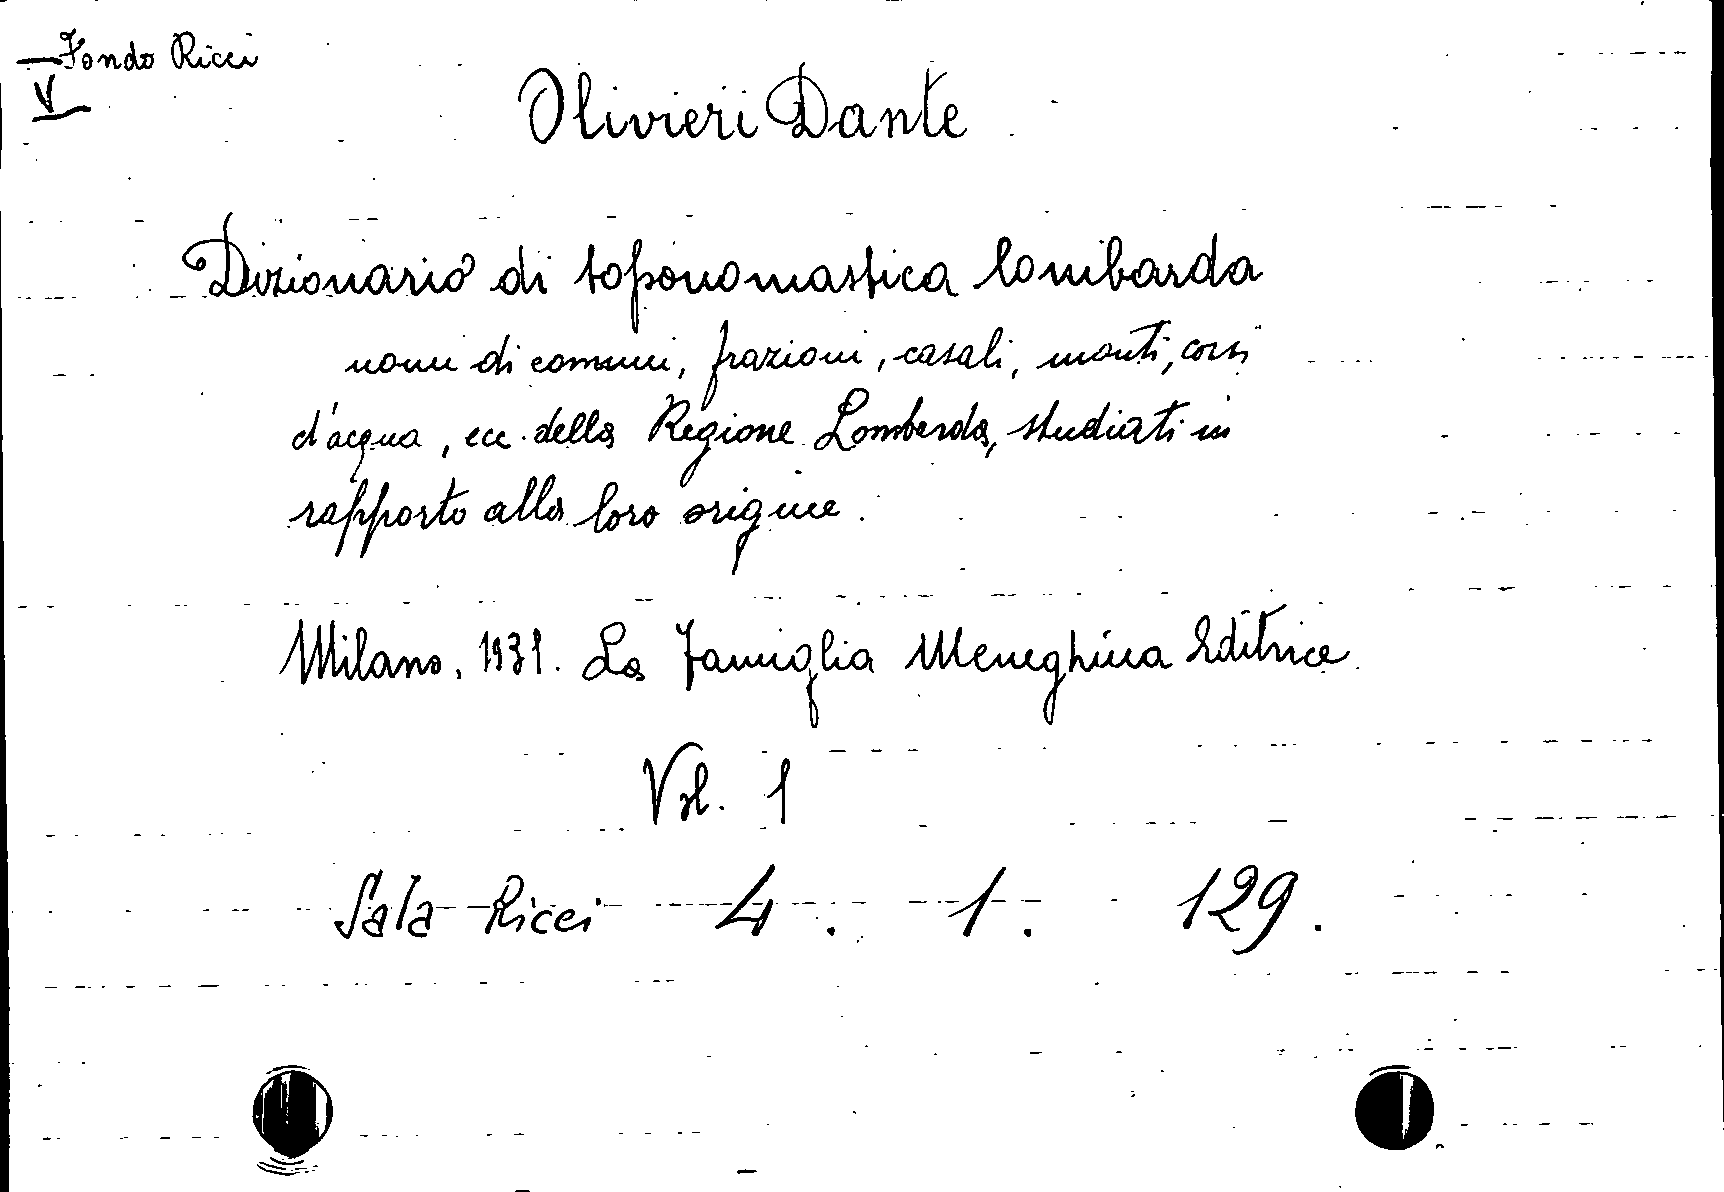 Fondo Ricci
V
Olivieri Dante
Dizionario di toponomastica lombarda
nomi di comuni, frazioni, casali, monti, corsi
d'acqua, ecc. della Regione Lombarda, studiati in
rapporto alla loro origine.
Milano, 1931. La Famiglia Meneghina Editrice.
Vol. 1
Sala Ricci 4. 1. 129.